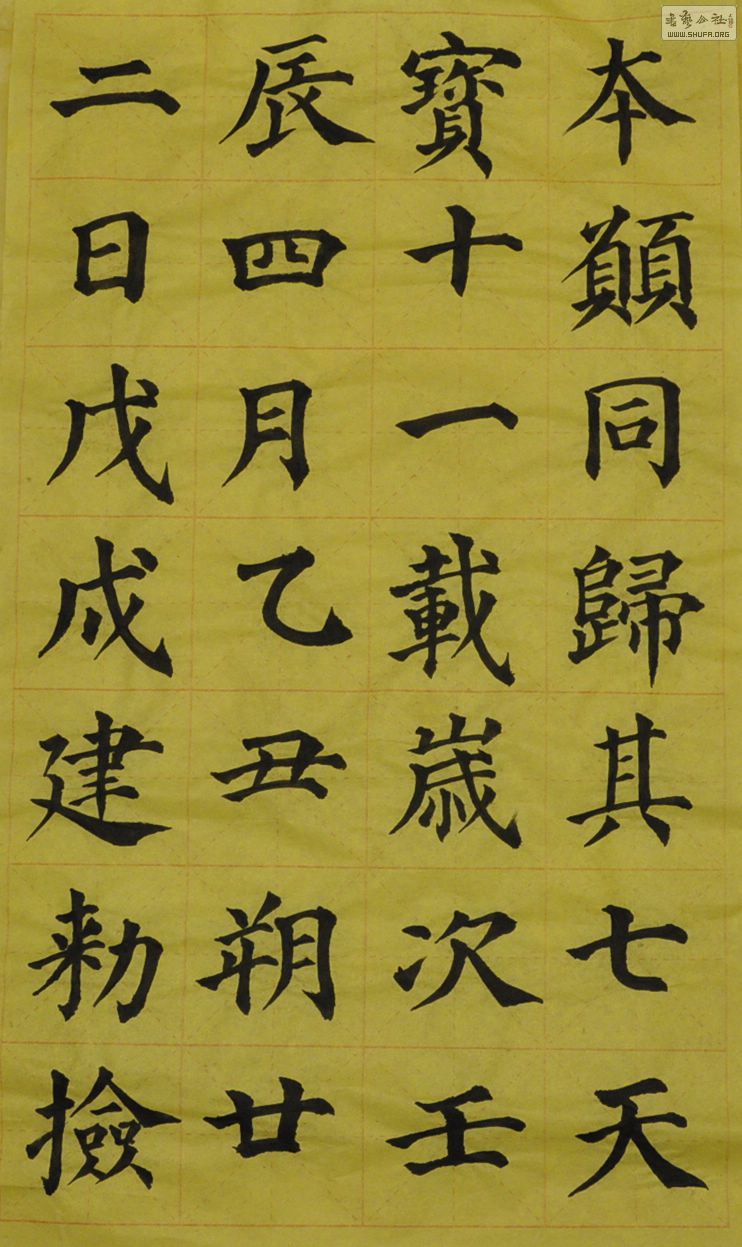 本願同歸其七天
寶十一載歲次壬
辰四月乙丑朔廿
二日戊戌建勑撿
書藝公社
WWW.SHUFA.ORG